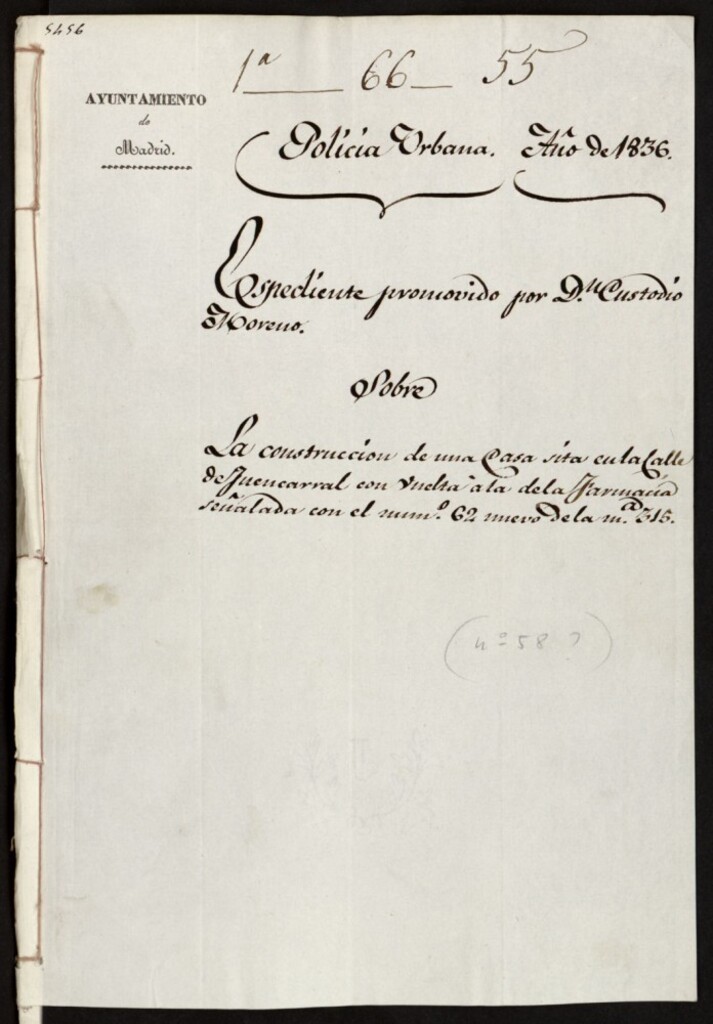 5456
1ª 66 55
AYUNTAMIENTO
de
Madrid.
Policia Urbana. Año de 1836.
Espediente promovido por D.ⁿ Custodio
Moreno.
Sobre
La construccion de una Casa sita en la Calle
de Fuencarral con vuelta à la de la Farmacia
señalada con el num.º 62 nuevo de la m.ª 315.
(nº 58 ?)